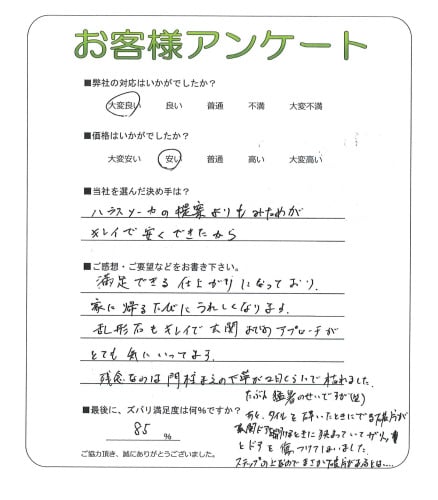 お客様アンケート
■弊社の対応はいかがでしたか?
大変良い 良い 普通 不満 大変不満
■価格はいかがでしたか?
大変安い 安い 普通 高い 大変高い
■当社を選んだ決め手は?
ハウスメーカの提案よりもみためが
キレイで安くできたから
■ご感想・ご要望などをお書き下さい。
満足できる仕上がりになっており、
家に帰るたびにうれしくなります。
乱形石もキレイで玄関までのアプローチが
とても気にいってます。
残念なのは門柱まえの下草が2日くらいで枯れました。
たぶん猛暑のせいですが(笑)
■最後に、ズバリ満足度は何%ですか?
85 %
あと、タイルを砕いたときにできる破片が
玄関ドア開けるときに挟まっていてガリッ
とドアを傷つけてしまいました。
ステップの上なのでまさか破片があるとは....
ご協力頂き、誠にありがとうございました。